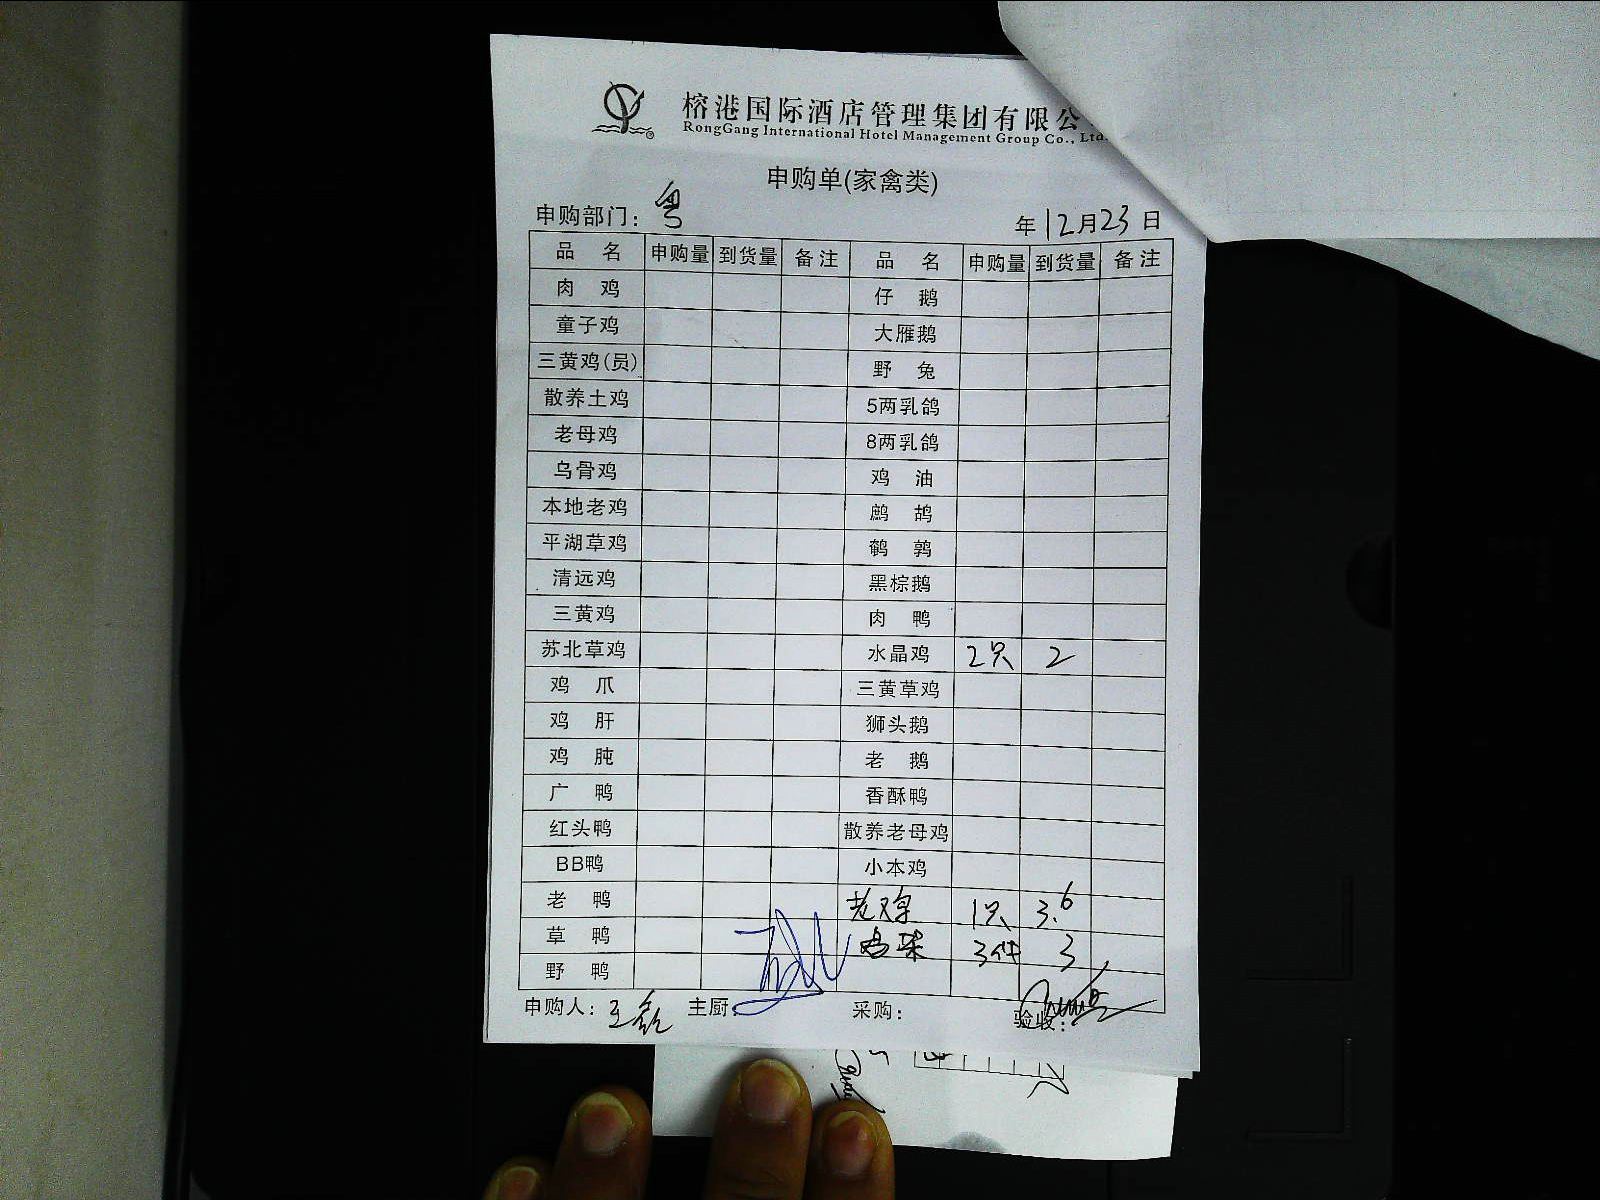 榕港国际酒店管理集团有限公
RongGang International Hotel Management Group Co., Ltd.
申购单(家禽类)
申购部门: 粤 年12月23日
品 名 申购量 到货量 备注 品 名 申购量 到货量 备注
肉 鸡 仔 鹅
童子鸡 大雁鹅
三黄鸡(员) 野 兔
散养土鸡 5两乳鸽
老母鸡 8两乳鸽
乌骨鸡 鸡 油
本地老鸡 鹧 鸪
平湖草鸡 鹌 鹑
清远鸡 黑棕鹅
三黄鸡 肉 鸭
苏北草鸡 水晶鸡 2只 2
鸡 爪 三黄草鸡
鸡 肝 狮头鹅
鸡 肫 老 鹅
广 鸭 香酥鸭
红头鸭 散养老母鸡
BB鸭 小本鸡
老 鸭 老鸡 1只 3.6
草 鸭 鸡 3件 3
野 鸭
申购人: 王磊 主厨: 采购: 验收: